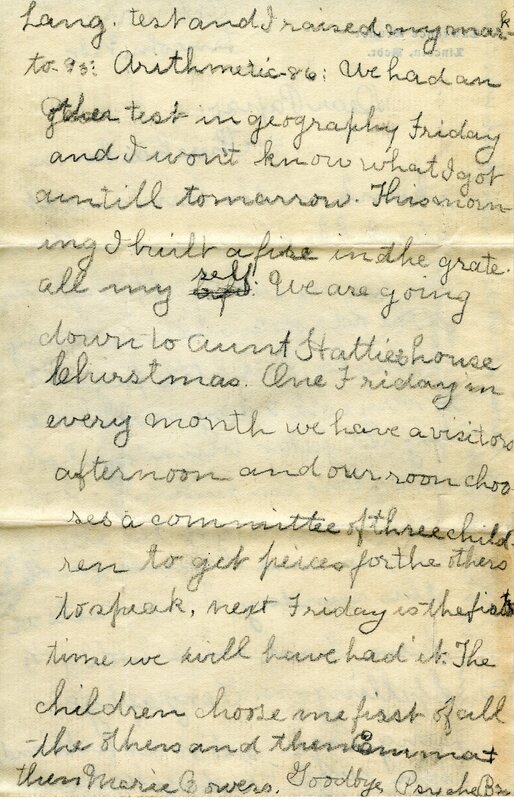 Lang. test and I raised my mark
to 93: Arithmetic-86: We had an
other test in geography Friday
and I wont know what I got
auntill tomarrow. This morn
ing I built a fire in the grate.
all my self. We are going
down to Aunt Hatties house
Churstmas. One Friday in
every month we have a visitors
afternoon and our roon choo
ses a committee of three child-
ren to get peices for the others
to speak, next Friday is the first
time we will have had it. The
children choose me first of all
the others and then Emma +
then Marie Bowers. Goodbye Psyche